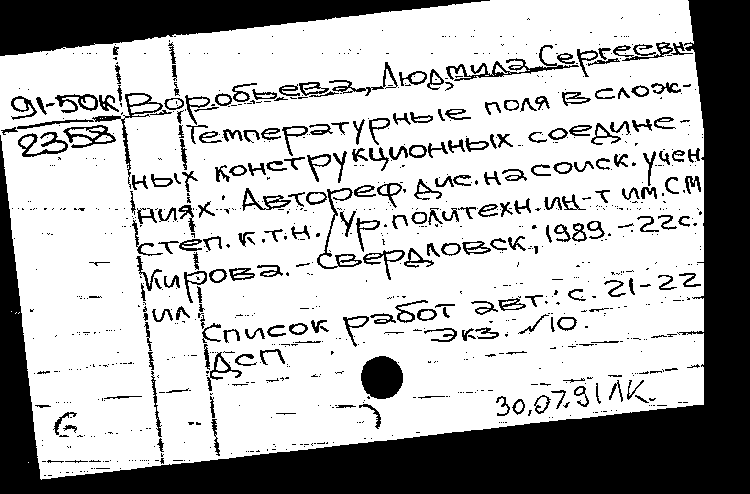 91-50К Воробьева, Людмила Сергеевна
2358 Температурные поля в слож-
ных конструкционных соедине-
ниях: Автореф. дис. на соиск. учен.
степ. к.т.н. / Ур. политехн. ин-т им. С.М
Кирова. - Свердловск, 1989. - 22с.:
ил.
Список работ авт.: с. 21-22
Экз. №10.
ДСП
30.07.91 ЛК.